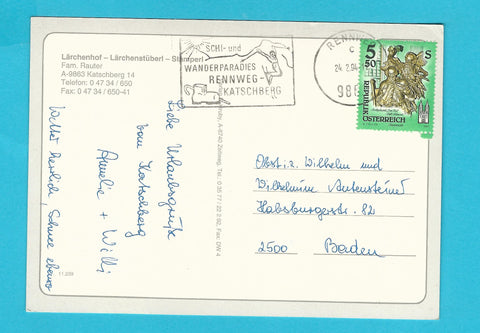 Lärchenhof – Lärchenstüberl – Stamperl
Fam. Rauter
A-9863 Katschberg 14
Telefon: 0 47 34 / 650
Fax: 0 47 34 / 650-41
SCHI- und
WANDERPARADIES
RENNWEG-
KATSCHBERG
RENNWEG
24.2.94
986
5 50 S
REPUBLIK
ÖSTERREICH
Liebe Urlaubsgrüße
vom Katschberg
Amelie + Willi
Wetter herrlich, Schnee ebenso
A-8740 Zeltweg, Tel. 0 35 77 / 22 2 62, Fax DW 4
Obst. i. R. Wilhelm und
Wilhelmine
Habsburgerstr. 82
2500 Baden